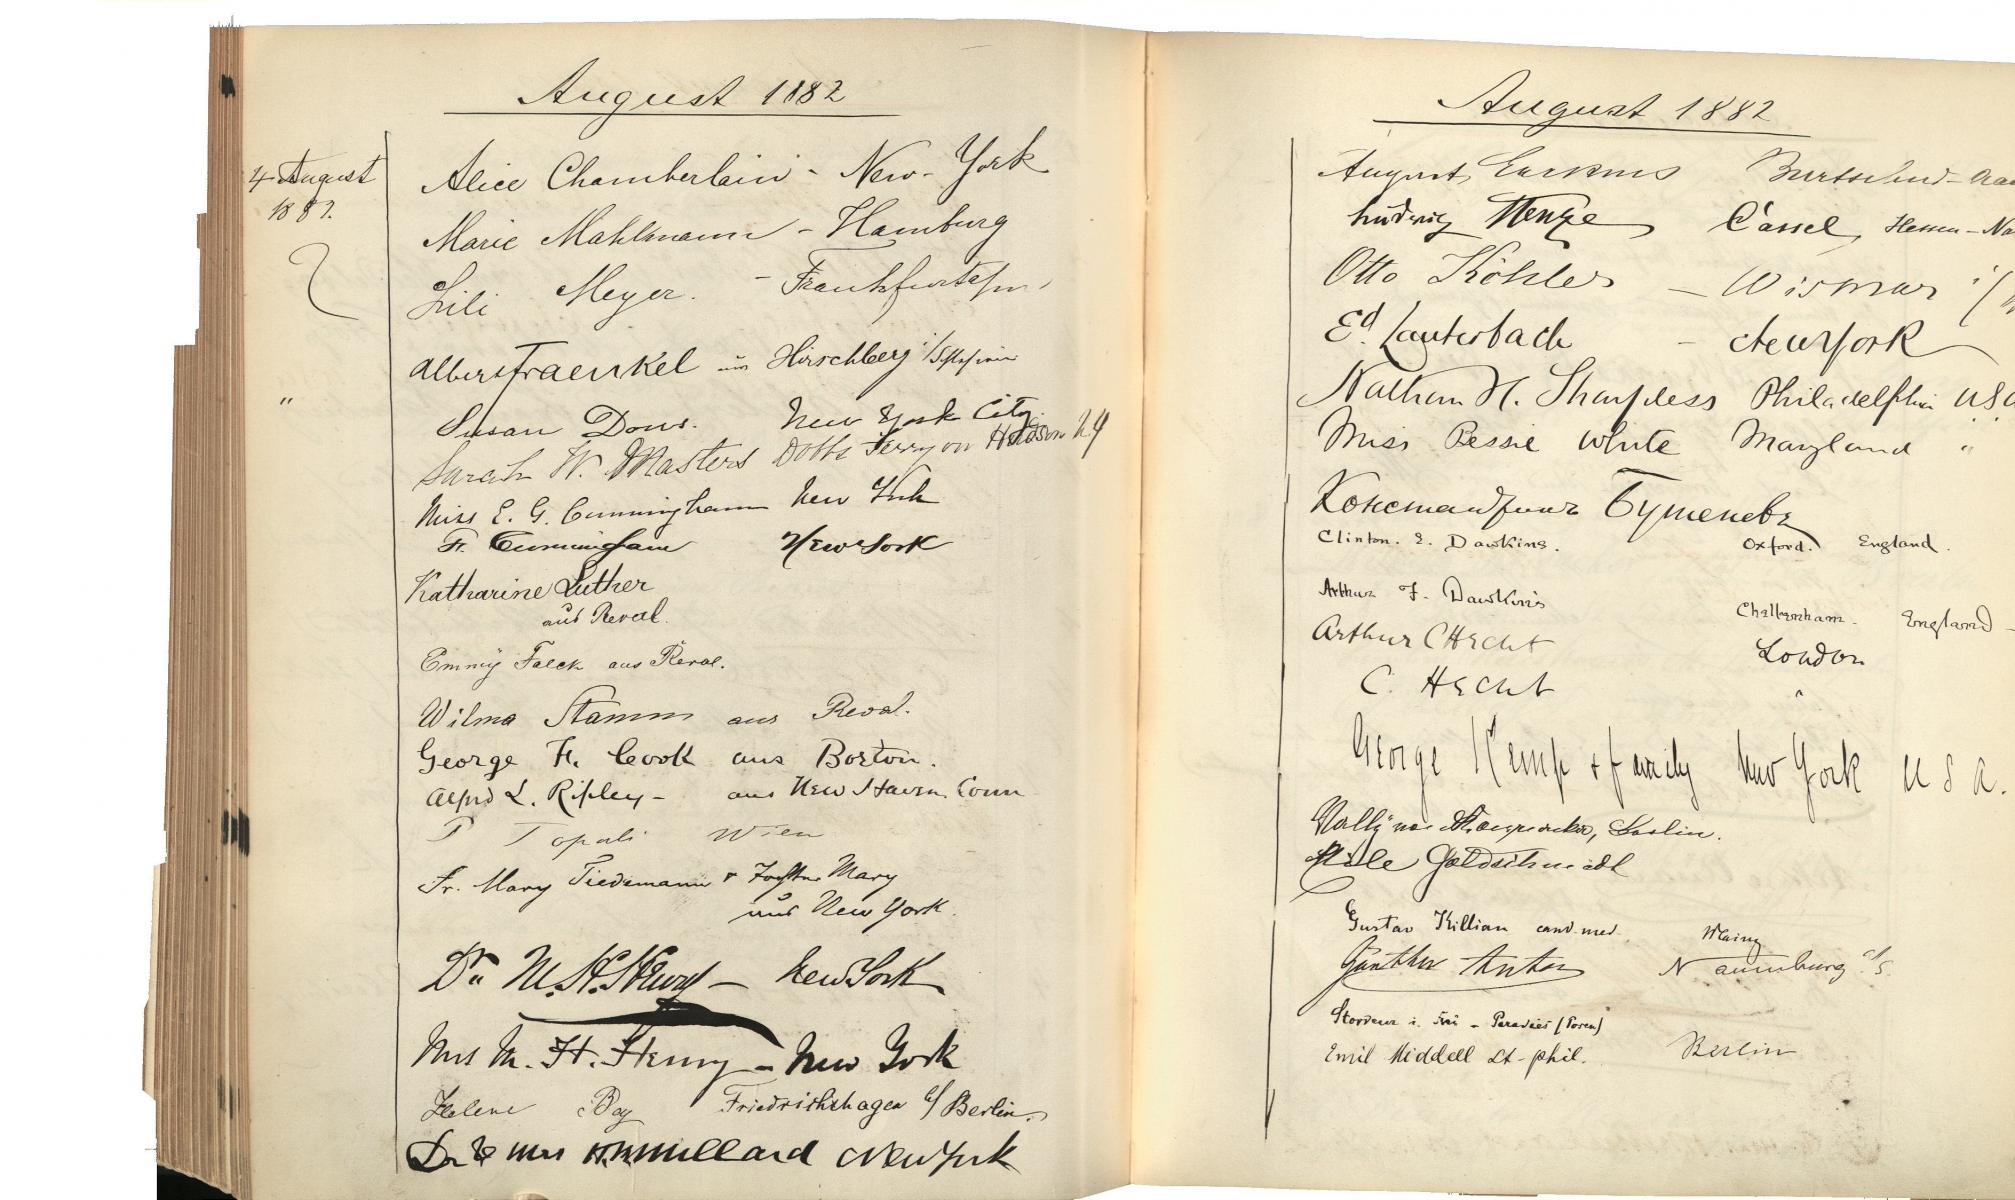 August 1882
4 August
1882.
Alice Chamberlain - New-York
Marie Mahlmann - Hamburg
Lili Meyer. - Frankfurt a/m
Albert Fraenkel aus Hirschberg i/Schlesien
"
Susan Dows. New York City.
Sarah W. Masters Dobbs Ferry on Hudson NY
Miss E. G. Cunningham New York
F. Cunningham New York
Katharine Luther
aus Reval.
Emmy Falck aus Reval.
Wilma Stamm aus Reval.
George H. Cook aus Boston.
Alfred L. Ripley - aus New Haven. Conn
P Topali Wien
Fr. Mary Tiedemann & Tochter Mary
aus New York.
Dr. M. H. Henry - New York
Mrs M. H. Henry - New York
Helene Bay Friedrichshagen b/Berlin.
Dr & Mrs Millard New York
August 1882
August Burtscheid
Ludwig Cassel, Hessen-Na
Otto Köhler - Wismar i/
Ed. Lauterbach - New York
Nathan H. Sharpless Philadelphia USA
Miss Bessie White Maryland "
Туменевъ
Clinton. E. Dawkins. Oxford. England.
Arthur F. Dawkins Cheltenham. England -
Arthur C Hecht London
C. Hecht "
George Kemp & family New York U S A.
Berlin.
Goldschmidt
Gustav Killian cand. med. Mainz
Günther Anton Naumburg a/S.
Paradies (Posen)
Emil Middell Berlin